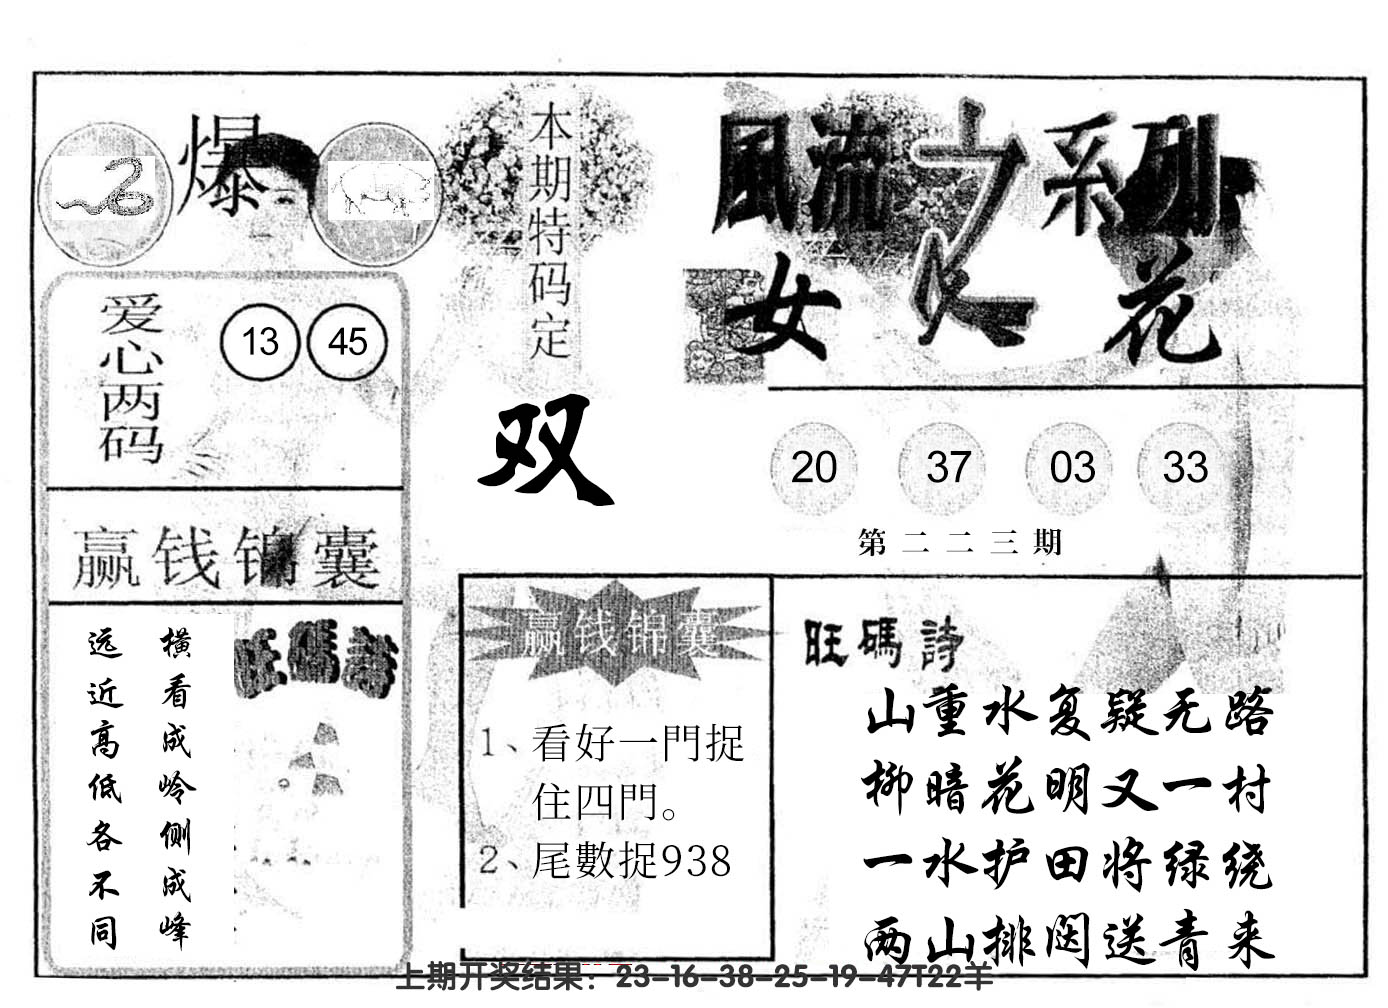 爆
本期特码定
双
風流之系列
女人花
爱心两码
13 45
20 37 03 33
第二二三期
赢钱锦囊
旺碼詩
横看成岭侧成峰
远近高低各不同
赢钱锦囊
1、看好一門捉
住四門。
2、尾數捉938
旺碼詩
山重水复疑无路
柳暗花明又一村
一水护田将绿绕
两山排闼送青来
上期开奖结果：23-16-38-25-19-47T22羊